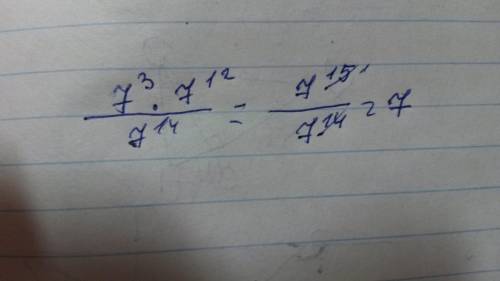 7³ · 7¹² / 7¹⁴ = 7¹⁵ ¹ / 7¹⁴ = 7